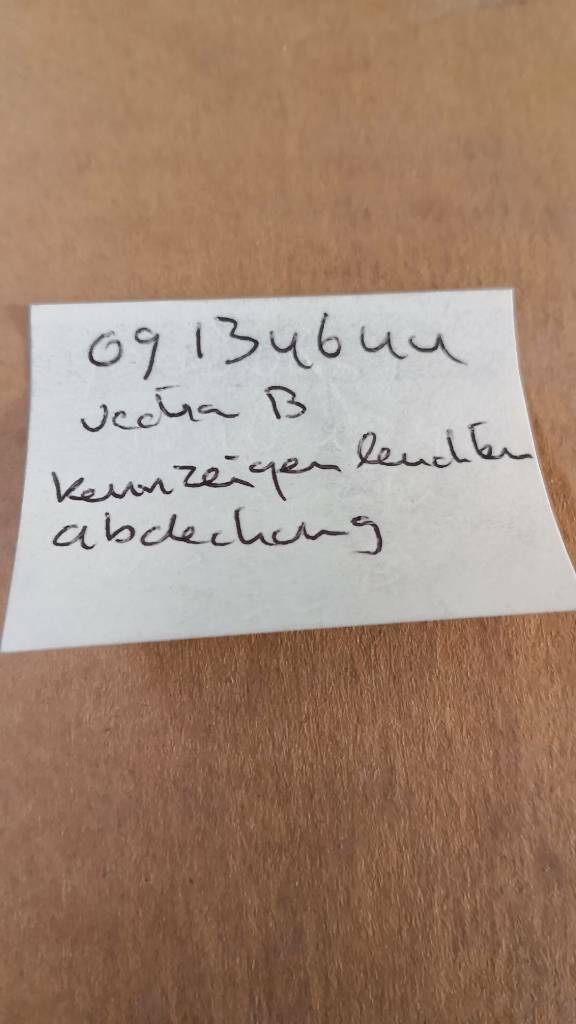 09134644
Vectra B
Kennzeigen leuchten
abdeckung